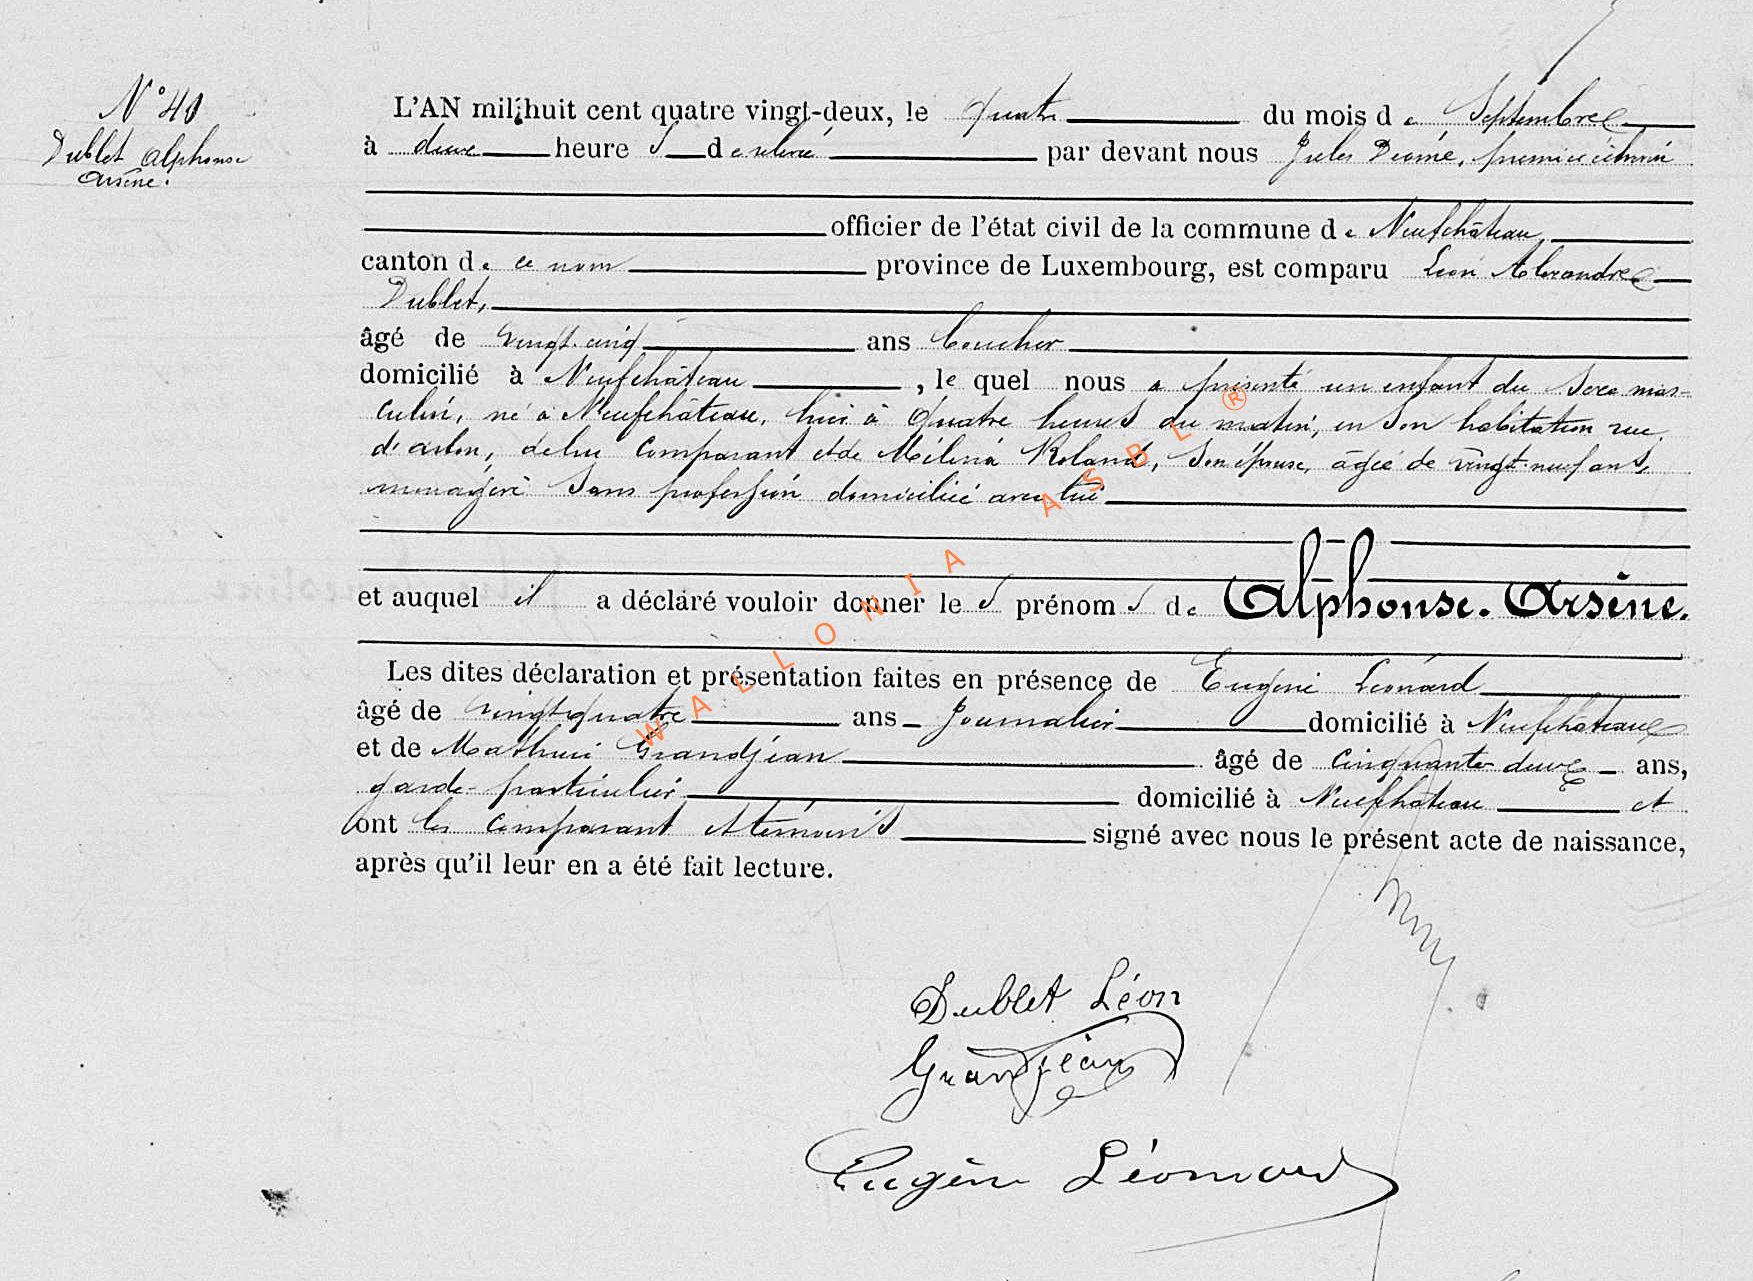 N° 40
Dublet Alphonse
Arsène.
L'AN mil huit cent quatre vingt-deux, le quatre du mois de Septembre
à deux heures de relevé par devant nous Jules Diomé, premier échevin
officier de l'état civil de la commune de Neufchâteau,
canton de ce nom province de Luxembourg, est comparu Léon Alexandre
Dublet,
âgé de vingt-cinq ans boucher
domicilié à Neufchâteau, lequel nous a présenté un enfant du sexe mas-
culin, né à Neufchâteau, hier à quatre heures du matin, en son habitation rue
d'arlon, de lui comparant et de Mélinà Roland, son épouse, âgée de vingt-neuf ans,
ménagère sans profession domiciliée avec lui
et auquel il a déclaré vouloir donner les prénoms de Alphonse. Arsène.
Les dites déclaration et présentation faites en présence de Eugène Léonard
âgé de vingt quatre ans Journalier domicilié à Neufchateau
et de Mathieu Grandjean âgé de cinquante deux ans,
garde-particulier domicilié à Neufchateau et
ont les comparant et témoins signé avec nous le présent acte de naissance,
après qu'il leur en a été fait lecture.
Dublet Léon
Grandjean
Eugène Léonard
WALLONIA ASBL ®